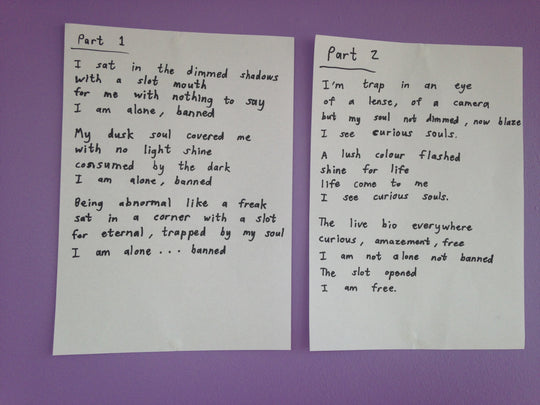 Part 1
I sat in the dimmed shadows
with a slot mouth
for me with nothing to say
I am alone, banned
My dusk soul covered me
with no light shine
consumed by the dark
I am alone, banned
Being abnormal like a freak
sat in a corner with a slot
for eternal, trapped by my soul
I am alone... banned
Part 2
I'm trap in an eye
of a lense, of a camera
but my soul not dimmed, now blaze
I see curious souls.
A lush colour flashed
shine for life
life come to me
I see curious souls.
The live bio everywhere
curious, amazement, free
I am not alone not banned
The slot opened
I am free.